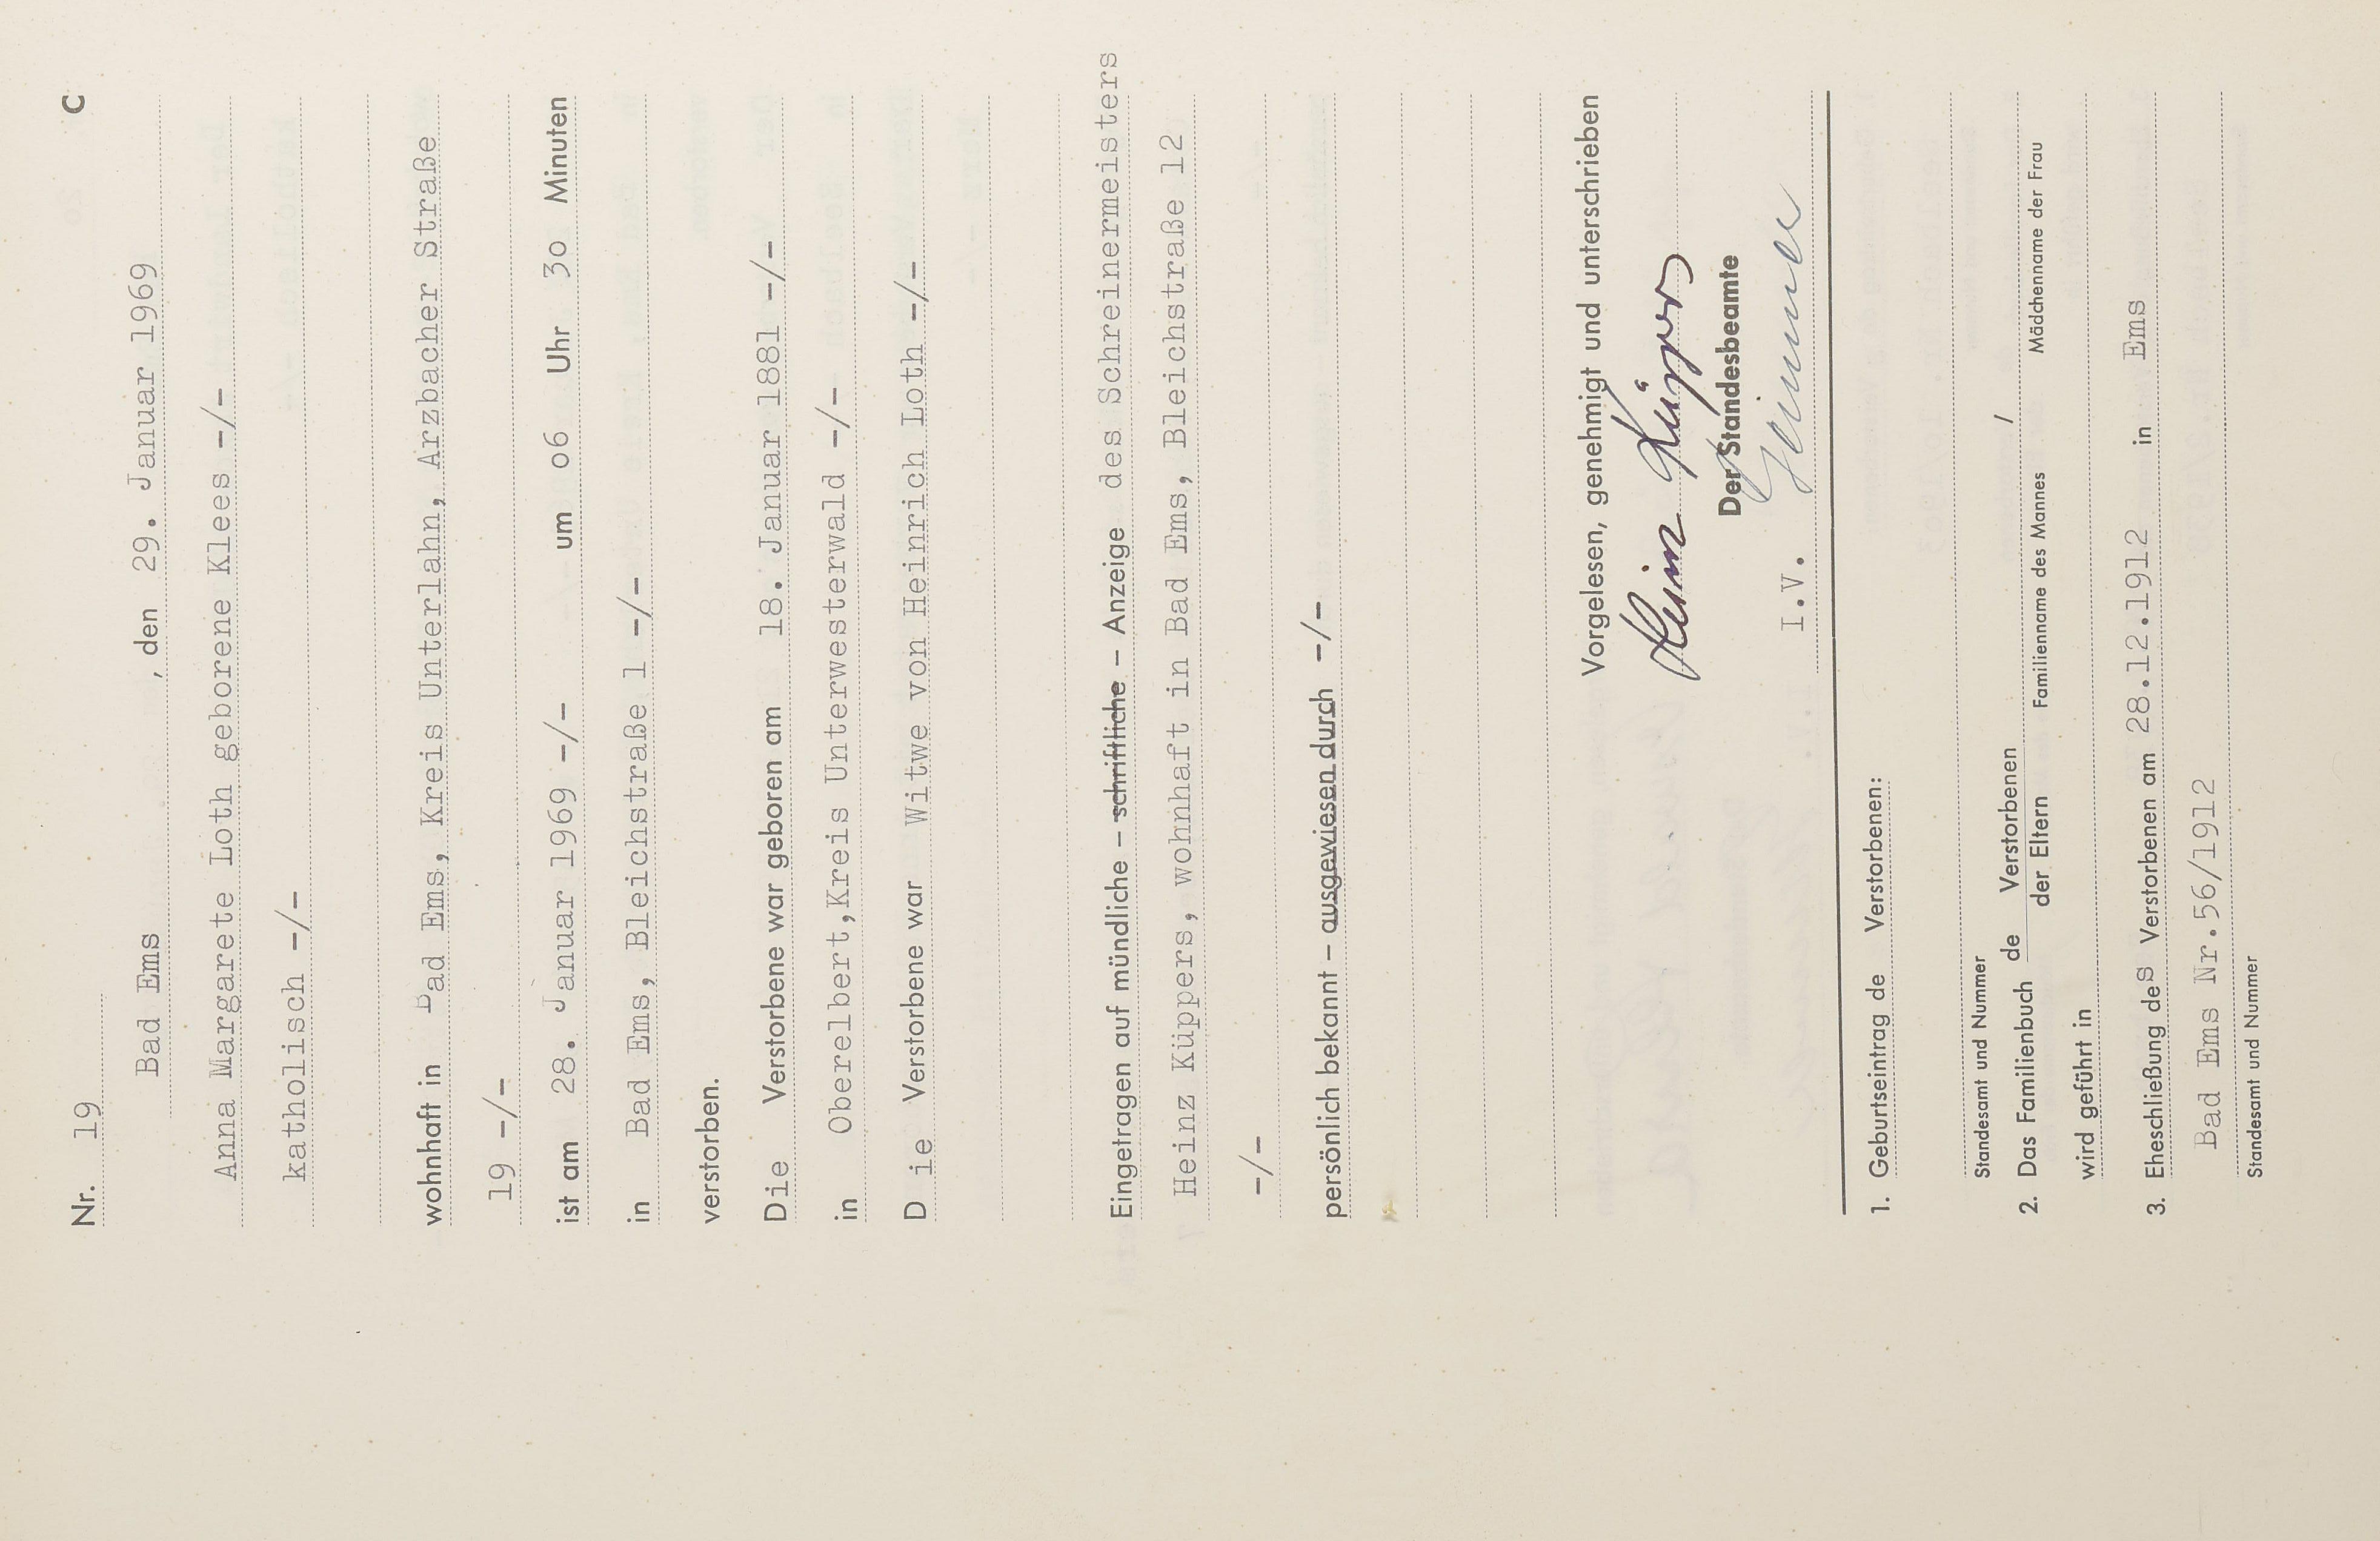 Nr. 19 C
Bad Ems , den 29. Januar 1969
Anna Margarete Loth geborene Klees -/-
katholisch -/-
wohnhaft in Bad Ems, Kreis Unterlahn, Arzbacher Straße
19 -/-
ist am 28. Januar 1969 -/- um 06 Uhr 30 Minuten
in Bad Ems, Bleichstraße 1 -/-
verstorben.
Die Verstorbene war geboren am 18. Januar 1881 -/-
in Oberelbert,Kreis Unterwesterwald -/-
D ie Verstorbene war Witwe von Heinrich Loth -/-
Eingetragen auf mündliche – schriftliche – Anzeige des Schreinermeisters
Heinz Küppers, wohnhaft in Bad Ems, Bleichstraße 12
-/-
persönlich bekannt – ausgewiesen durch -/-
Vorgelesen, genehmigt und unterschrieben
Heinz Küppers
Der Standesbeamte
I.V.
1. Geburtseintrag de Verstorbenen:
Standesamt und Nummer
2. Das Familienbuch de Verstorbenen /
der Eltern Familienname des Mannes Mädchenname der Frau
wird geführt in
3. Eheschließung des Verstorbenen am 28.12.1912 in Ems
Bad Ems Nr.56/1912
Standesamt und Nummer